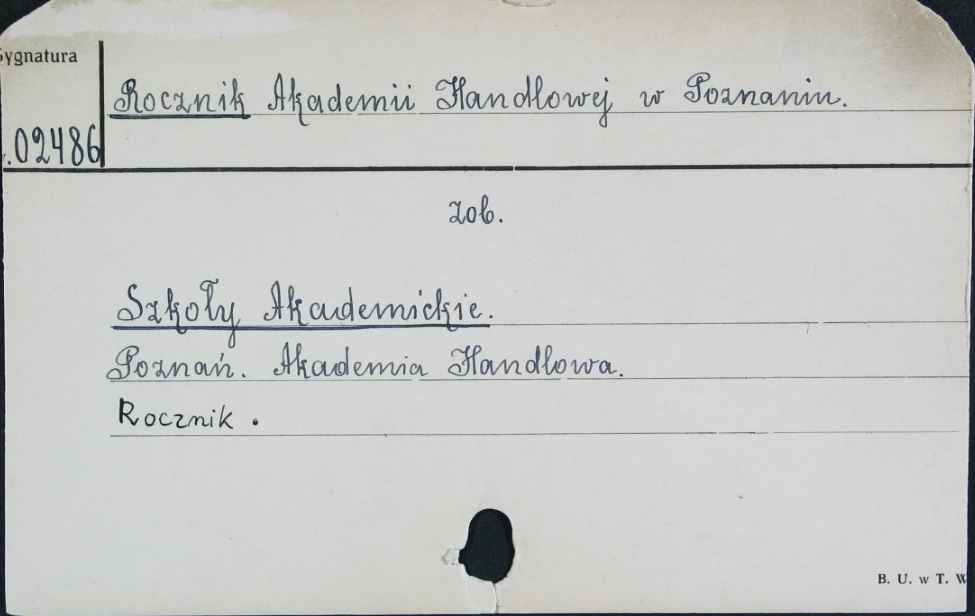 Sygnatura
Rocznik Akademii Handlowej w Poznaniu.
.02486
zob.
Szkoły Akademickie.
Poznań. Akademia Handlowa.
Rocznik.
B. U. w T. W